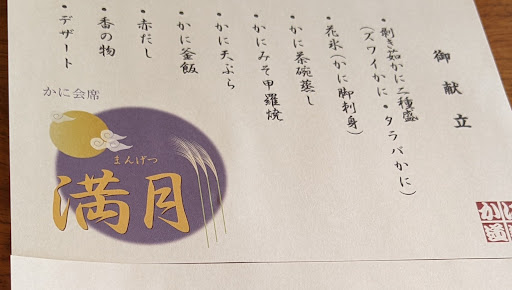 御献立
・剥き茹かに二種盛
(ズワイかに・タラバかに)
・花氷(かに脚刺身)
・かに茶碗蒸し
・かにみそ甲羅焼
・かに天ぷら
・かに釜飯
・赤だし
・香の物
・デザート
かに会席
まんげつ
満月